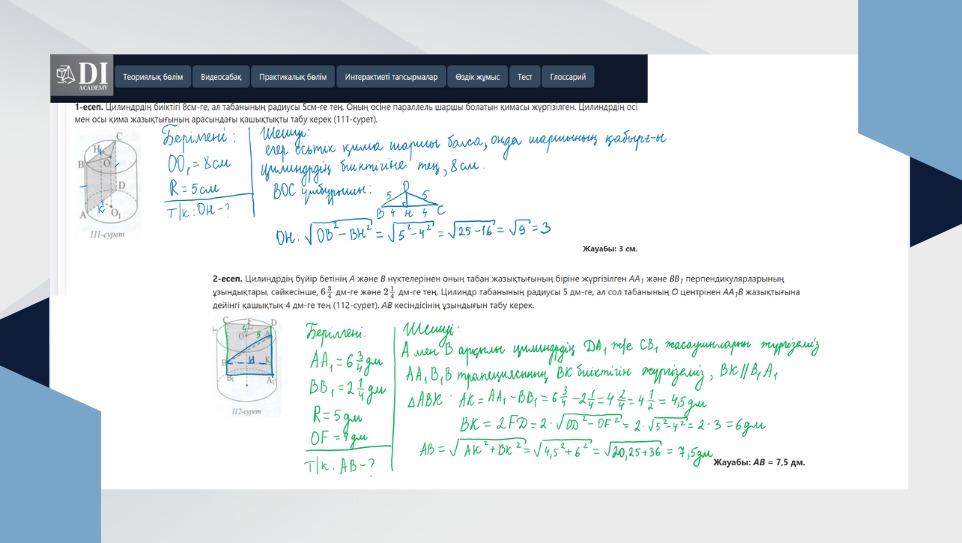 DI
ACADEMY
Теориялық бөлім
Видеосабақ
Практикалық бөлім
Интерактивті тапсырмалар
Өздік жұмыс
Тест
Глоссарий
1-есеп. Цилиндрдің биіктігі 8см-ге, ал табанының радиусы 5см-ге тең. Оның осіне параллель шаршы болатын қимасы жүргізілген. Цилиндрдің осі
мен осы қима жазықтығының арасындағы қашықтықты табу керек (111-сурет).
C
H
O
B
D
K
A
O₁
111-сурет
Берілгені:
OO₁ = 8см
R = 5см
Т/к: OH - ?
Шешуі:
егер осьтік қима шаршы болса, онда шаршының қабырғ-ы
цилиндрдің биіктігіне тең, 8см.
BOC үшбұрышы:
O
5 5
B 4 H 4 C
OH = √OB² – BH² = √5² – 4² = √25 – 16 = √9 = 3
Жауабы: 3 см.
2-есеп. Цилиндрдің бүйір бетінің A және B нүктелерінен оның табан жазықтығының біріне жүргізілген AA₁ және BB₁ перпендикулярларының
ұзындықтары, сәйкесінше, 6 3/4 дм-ге және 2 1/4 дм-ге тең. Цилиндр табанының радиусы 5 дм-ге, ал сол табанының O центрінен AA₁B жазықтығына
дейінгі қашықтық 4 дм-ге тең (112-сурет). AB кесіндісінің ұзындығын табу керек.
B
K
B₁
A₁
112-сурет
Берілгені:
AA₁ = 6 3/4 дм
BB₁ = 2 1/4 дм
R = 5 дм
OF = 4 дм
Т/к. AB - ?
Шешуі:
A мен B арқылы цилиндрдің DA₁ ж/е CB₁ жасаушыларын жүргіземіз
AA₁B₁B трапециясының BK биіктігін жүргіземіз, BK // B₁A₁
△ABK AK = AA₁ – BB₁ = 6 3/4 – 2 1/4 = 4 2/4 = 4 1/2 = 4,5 дм
BK = 2FD = 2 · √OD² – OF² = 2 · √5² – 4² = 2 · 3 = 6 дм
AB = √AK² + BK² = √4,5² + 6² = √20,25 + 36 = 7,5 дм
Жауабы: AB = 7,5 дм.